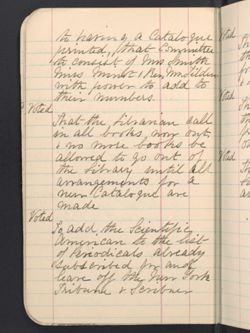 to having a Catalogue
printed, that Committee
to consist of Mrs Smyth
Mrs Minot & Rev. Mr Tilden
with power to add to
their numbers.
Voted
That the Librarian call
in all books, now out,
& no more books be
allowed to go out of
the Library until all
arrangements for a
new Catalogue are
made
Voted
To add the Scientific
American to the list
of Periodicals already
subscribed for and
leave off the New York
Tribune & Scribner
Voted
Voted